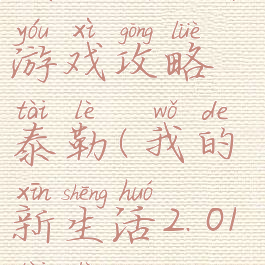 yóu xì gōng lüè
游戏攻略
tài lè wǒ de
泰勒(我的
xīn shēng huó
新生活2.01